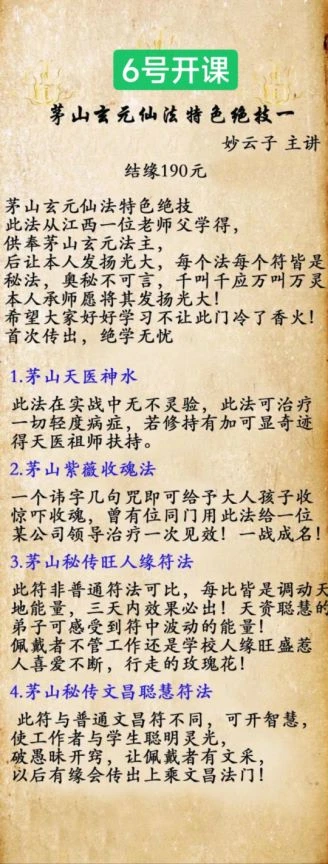 6号开课
茅山玄元仙法特色绝技一
妙云子 主讲
结缘190元
茅山玄元仙法特色绝技
此法从江西一位老师父学得，
供奉茅山玄元法主，
后让本人发扬光大，每个法每个符皆是
秘法，奥秘不可言，千叫千应万叫万灵
本人承师愿将其发扬光大！
希望大家好好学习不让此门冷了香火！
首次传出，绝学无忧
1.茅山天医神水
此法在实战中无不灵验，此法可治疗
一切轻度病症，若修持有加可显奇迹
得天医祖师扶持。
2.茅山紫薇收魂法
一个讳字几句咒即可给予大人孩子收
惊吓收魂，曾有位同门用此法给一位
某公司领导治疗一次见效！一战成名！
3.茅山秘传旺人缘符法
此符非普通符法可比，每比皆是调动天
地能量，三天内效果必出！天资聪慧的
弟子可感受到符中波动的能量！
佩戴者不管工作还是学校人缘旺盛惹
人喜爱不断，行走的玫瑰花！
4.茅山秘传文昌聪慧符法
此符与普通文昌符不同，可开智慧，
使工作者与学生聪明灵光，
破愚昧开窍，让佩戴者有文采，
以后有缘会传出上乘文昌法门！